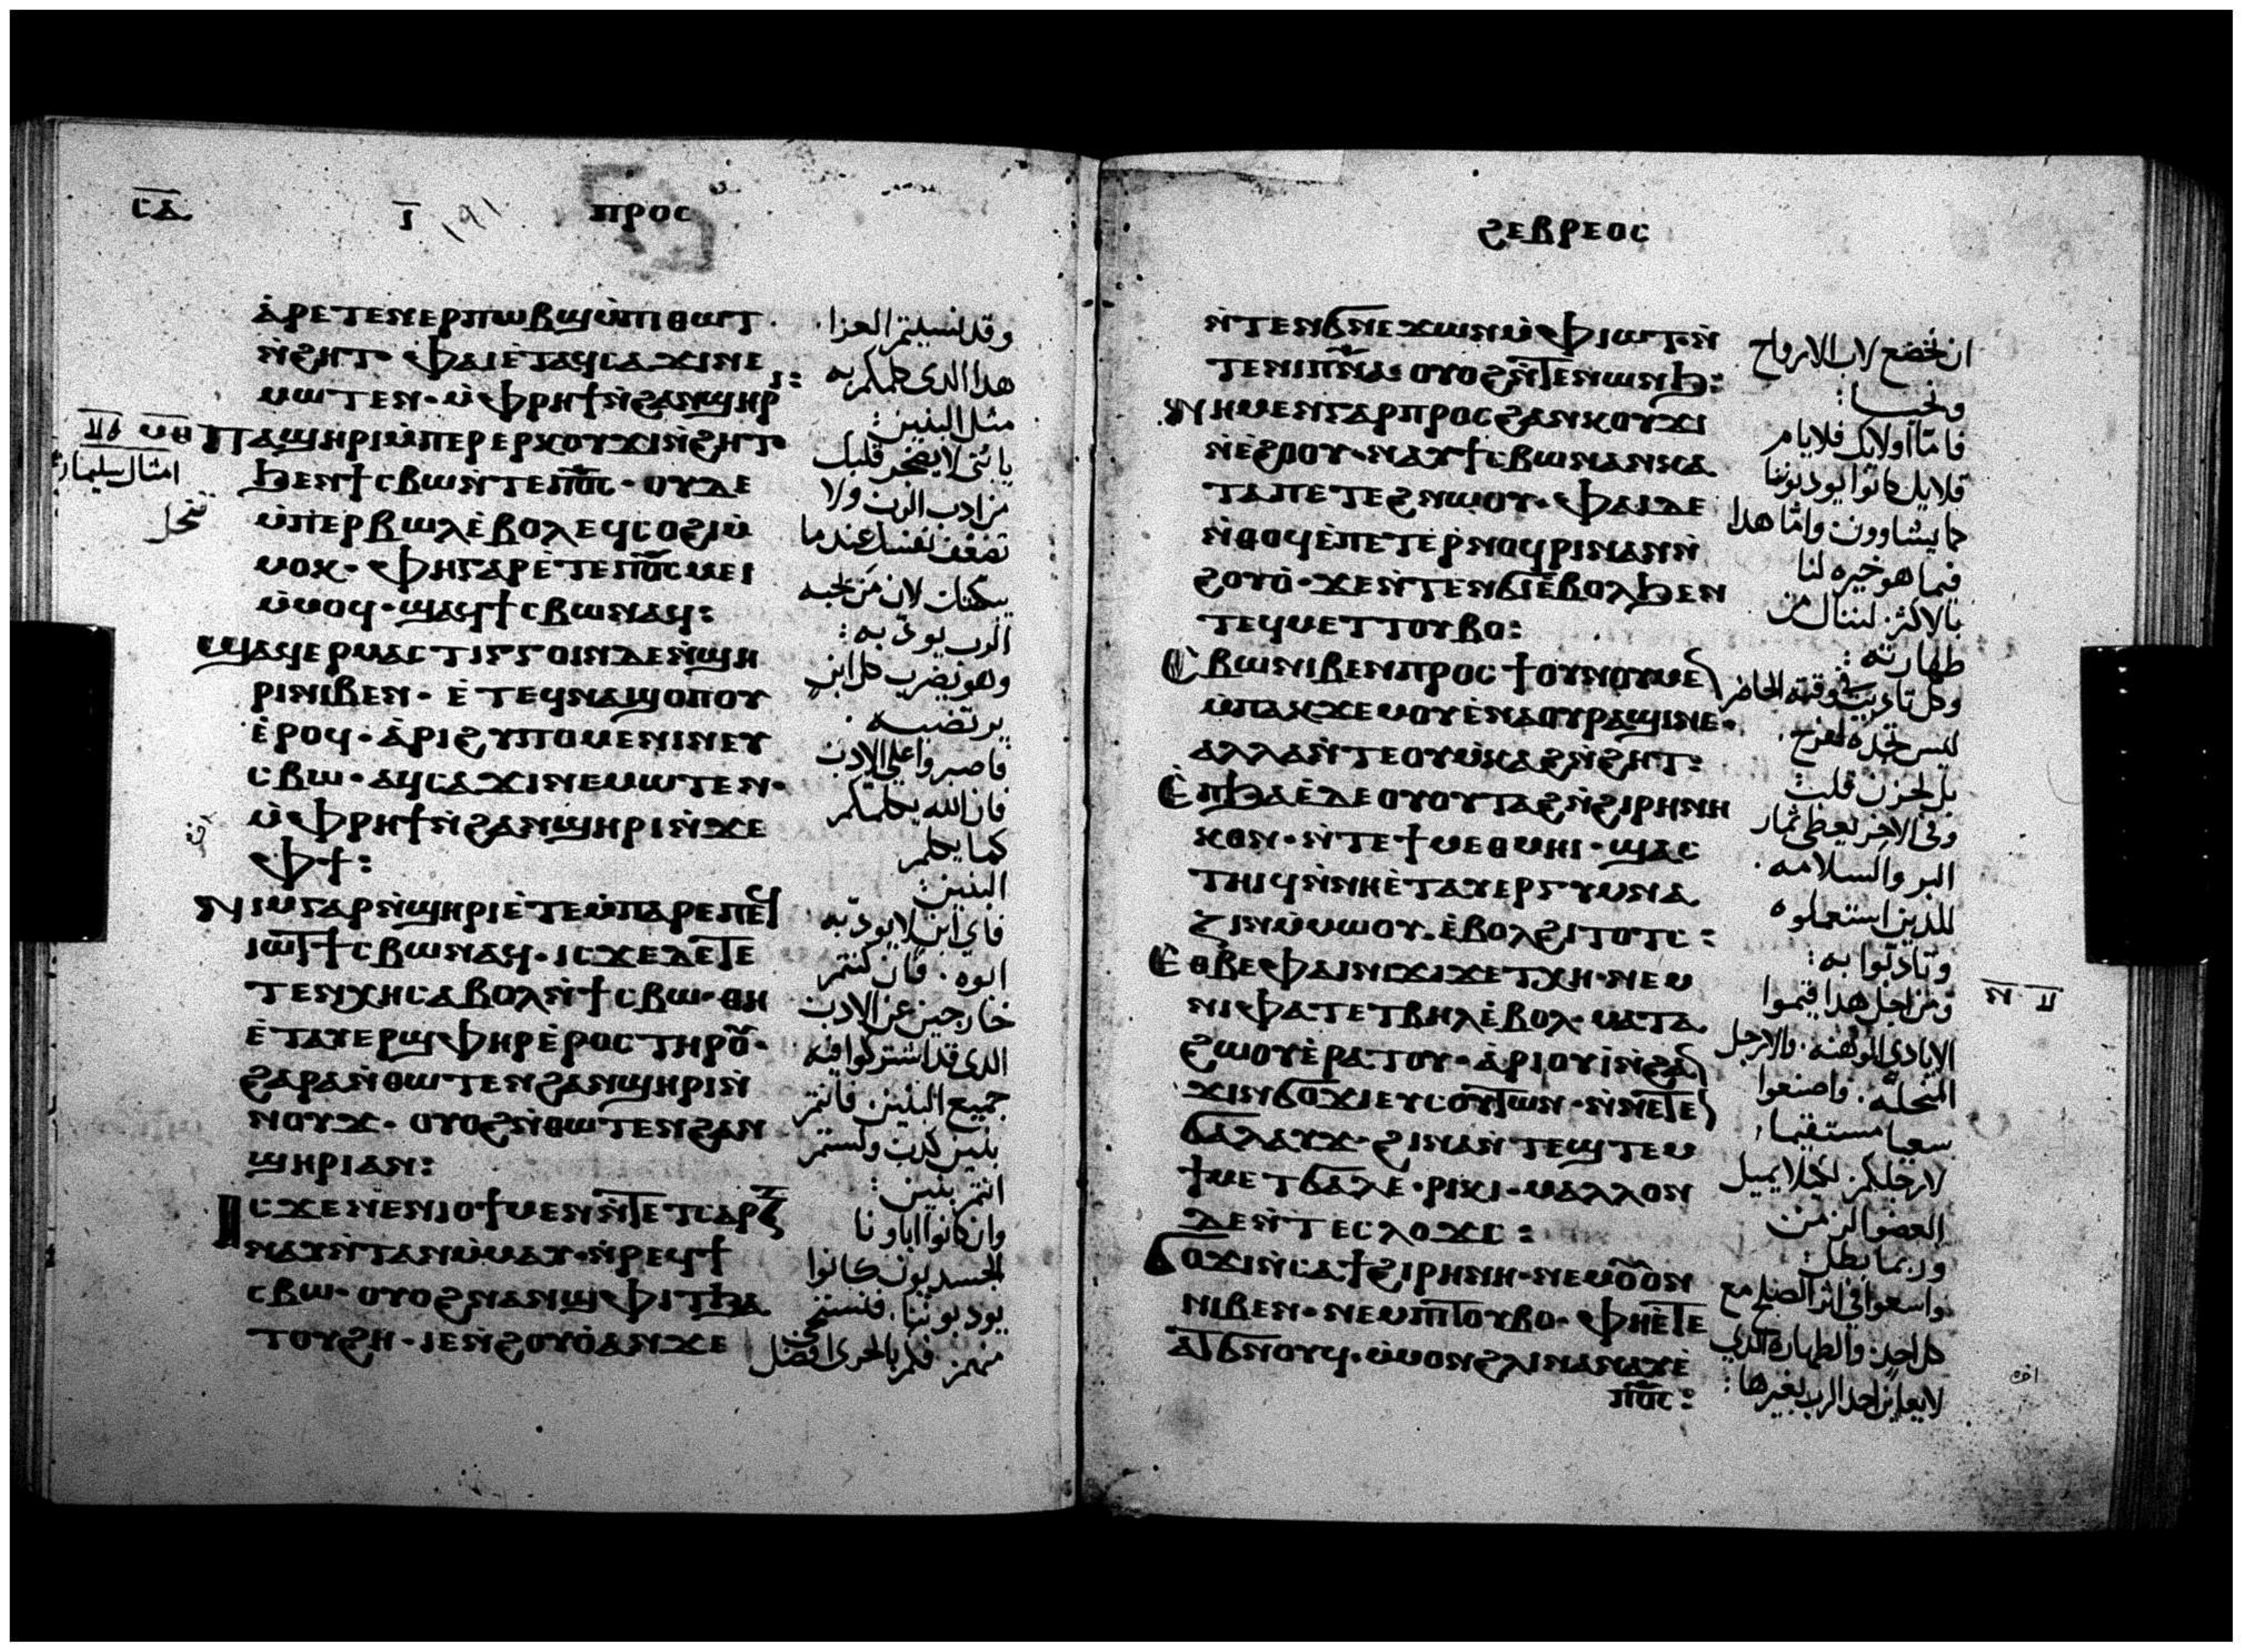 ⲤⲆ Ⲓ 191 ⲡⲣⲟⲥ
ⲁ̀ⲣⲉⲧⲉⲛⲉⲣⲡⲱⲃϣⲙ̀ⲡⲓⲑⲱⲧ
ⲛ̀ϩⲏⲧ· ⲫⲁⲓⲉ̀ⲧⲁϥⲥⲁϫⲓⲛⲉ
ⲙⲱⲧⲉⲛ· ⲙ̀ⲫⲣⲏϯⲛ̀ϩⲁⲛϣⲏⲣⲓ:
ⲡⲁϣⲏⲣⲓⲙ̀ⲡⲉⲣⲉⲣⲕⲟⲩϫⲓⲛ̀ϩⲏⲧ·
ϧⲉⲛϯⲥⲃⲱⲛ̀ⲧⲉⲡⲟ̅ⲥ̅· ⲟⲩⲇⲉ
ⲙ̀ⲡⲉⲣⲃⲱⲗⲉ̀ⲃⲟⲗⲉϥⲥⲟϩⲓⲙ̀
ⲙⲟⲕ· ⲫⲏⲅⲁⲣⲉ̀ⲧⲉⲡⲟ̅ⲥ̅ⲙⲉⲓ
ⲙ̀ⲙⲟϥ· ϣⲁϥϯⲥⲃⲱⲛⲁϥ:
ϣⲁϥⲉⲣⲙⲁⲥⲧⲓⲅⲅⲟⲓⲛⲇⲉⲛ̀ϣⲏ
ⲣⲓⲛⲓⲃⲉⲛ· ⲉ̀ⲧⲉϥⲛⲁϣⲟⲡⲟⲩ
ⲉ̀ⲣⲟϥ· ⲁ̀ⲣⲓϩⲩⲡⲟⲙⲉⲛⲓⲛⲉⲩ
ⲥⲃⲱ· ⲁϥⲥⲁϫⲓⲛⲉⲙⲱⲧⲉⲛ·
ⲙ̀ⲫⲣⲏϯⲛ̀ϩⲁⲛϣⲏⲣⲓⲛ̀ϫⲉ
ⲫϯ:
ⲛⲓⲙⲅⲁⲣⲛ̀ϣⲏⲣⲓⲉ̀ⲧⲉⲙ̀ⲡⲁⲣⲉⲡⲉϥ
ⲓⲱⲧϯⲥⲃⲱⲛⲁϥ· ⲓⲥϫⲉⲇⲉⲧⲉ
ⲧⲉⲛⲭⲏⲥⲁⲃⲟⲗⲛ̀ϯⲥⲃⲱ· ⲑⲏ
ⲉ̀ⲧⲁⲩⲉⲣϣⲫⲏⲣⲉ̀ⲣⲟⲥⲧⲏⲣⲟⲩ·
ϩⲁⲣⲁⲛ̀ⲑⲱⲧⲉⲛϩⲁⲛϣⲏⲣⲓⲛ̀
ⲛⲟⲩϫ· ⲟⲩⲟϩⲛ̀ⲑⲱⲧⲉⲛϩⲁⲛ
ϣⲏⲣⲓⲁⲛ:
ⲓⲥϫⲉⲛⲉⲛⲓⲟϯⲙⲉⲛⲛ̀ⲧⲉⲧⲥⲁⲣⲝ
ⲛⲁⲩⲛ̀ⲧⲁⲛⲙ̀ⲙⲁⲩ· ⲛ̀ⲣⲉϥϯ
ⲥⲃⲱ· ⲟⲩⲟϩⲛⲁⲛϣⲫⲓⲧϧⲁ
ⲧⲟⲩϩⲏ· ⲓⲉⲛ̀ϩⲟⲩⲟ̀ⲁⲛϫⲉ
وقد نسيتم العزا
هذا الذي كلمكم به
مثل البنين:
يا بني لا يضجر قلبك
من ادب الرب ولا
تضعف نفسك عندما
يبكتك لان من يحبه
الرب يودبه:
وهو يضرب كل ابن
يرتضيه
فاصبروا علي الادب
فان الله يكلمكم
كما يكلم
البنين:
فاي ابن لا يودبه
ابوه. فان كنتم
خارجين عن الادب
الذي قد اشتركوا فيه
جميع البنين فانتم
بنين كذب ولستم
انتم بنين:
وان كانوا اباونا
الجسديون كانوا
يودبوننا. فنستحي
منهم فكم بالحري افضل
امثال سليمان
ϩⲉⲃⲣⲉⲟⲥ
ⲛ̀ⲧⲉⲛϭⲛⲉϫⲱⲛⲙ̀ⲫⲓⲱⲧ·ⲛ̀
ⲧⲉⲛⲓⲡ̅ⲛ̅ⲁ̅· ⲟⲩⲟϩⲛ̀ⲧⲉⲛⲱⲛϧ:
ⲛⲏⲙⲉⲛⲅⲁⲣⲡⲣⲟⲥϩⲁⲛⲕⲟⲩϫⲓ
ⲛ̀ⲉ̀ϩⲟⲟⲩ· ⲛⲁⲩϯⲥⲃⲱⲛⲁⲛⲕⲁ
ⲧⲁⲡⲉⲧⲉϩⲛⲱⲟⲩ· ⲫⲁⲓⲇⲉ
ⲛ̀ⲑⲟϥⲉ̀ⲡⲉⲧⲉ̀ⲣⲛⲟϥⲣⲓⲛⲁⲛⲛ̀
ϩⲟⲩⲟ̀· ϫⲉⲛ̀ⲧⲉⲛϭⲓⲉ̀ⲃⲟⲗϧⲉⲛ
ⲧⲉϥⲙⲉⲧⲧⲟⲩⲃⲟ:
ⲥⲃⲱⲛⲓⲃⲉⲛⲡⲣⲟⲥϯⲟⲩⲛⲟⲩⲙⲉ
ⲙ̀ⲡⲁⲕϫⲉⲙⲟⲩⲉ̀ⲛⲁⲟⲩⲣⲁϣⲓⲛⲉ·
ⲁⲗⲗⲁⲛ̀ⲧⲉⲟⲩⲙ̀ⲕⲁϩⲛ̀ϩⲏⲧ:
ⲉ̀ⲡϧⲁⲉ̀ⲇⲉⲟⲩⲟⲩⲧⲁϩⲛ̀ϩⲓⲣⲏⲛⲏ
ⲕⲟⲛ· ⲛ̀ⲧⲉϯⲙⲉⲑⲙⲏⲓ· ϣⲁⲥ
ⲧⲏⲓϥⲛ̀ⲛⲏⲉ̀ⲧⲁⲩⲉⲣⲅⲩⲙⲛⲁ
ⲍⲓⲛⲙ̀ⲙⲱⲟⲩ. ⲉ̀ⲃⲟⲗϩⲓⲧⲟⲧⲥ:
ⲉⲑⲃⲉⲫⲁⲓⲛⲓϫⲓϫⲉⲧⲭⲏ· ⲛⲉⲙ
ⲛⲓⲫⲁⲧⲉⲧⲃⲏⲗⲉ̀ⲃⲟⲗ· ⲙⲁⲧⲁ
ϩⲱⲟⲩⲉ̀ⲣⲁⲧⲟⲩ· ⲁ̀ⲣⲓⲟⲩⲓ̀ⲛ̀ϩⲁⲛ
ϫⲓⲛϭⲟϫⲓⲉⲩⲥⲟⲩⲧⲱⲛ· ⲛ̀ⲛⲉⲧⲉⲛ
ϭⲁⲗⲁⲩϫ· ϩⲓⲛⲁⲛ̀ⲧⲉϣⲧⲉⲙ
ϯⲙⲉⲧϭⲁⲗⲉ· ⲣⲓⲕⲓ· ⲙⲁⲗⲗⲟⲛ
ⲇⲉⲛ̀ⲧⲉⲥⲗⲟϫⲥ:
ϭⲟϫⲓⲛ̀ⲥⲁϯϩⲓⲣⲏⲛⲏ· ⲛⲉⲙⲟⲩⲟⲛ
ⲛⲓⲃⲉⲛ· ⲛⲉⲙⲡⲓⲧⲟⲩⲃⲟ· ⲫⲏⲉ̀ⲧⲉ
ⲁⲧϭⲛⲟⲩϥ· ⲙ̀ⲙⲟⲛϩⲗⲓⲛⲁⲛⲁⲩⲉ̀
ⲡⲟ̅ⲥ̅:
ان نخضع لاب الارواح
ونحيا:
فاما اوليك فلايام
قلايل كانوا يودبوننا
كما يشاوون واما هذا
فبما هو خيره لنا
بالاكثر لننال من
طهارته:
وكل تاديب في وقته الحاضر
ليس تجده لفرح.
بل لحزن قلب
وفي الاخر يعطي ثمار
البر والسلامه.
للذين استعملوه
وتادبوا به:
ومن اجل هذا قيموا
الايادي الموهنه. والارجل
المنحله. واصنعوا
سعيا مستقيما
لارجلكم لكيلا يميل
العضو الزمن
وربما بطل:
واسعوا في اثر الصلح مع
كل احد. والطهارة الذي
لا يعاين احد الرب بغيرها: